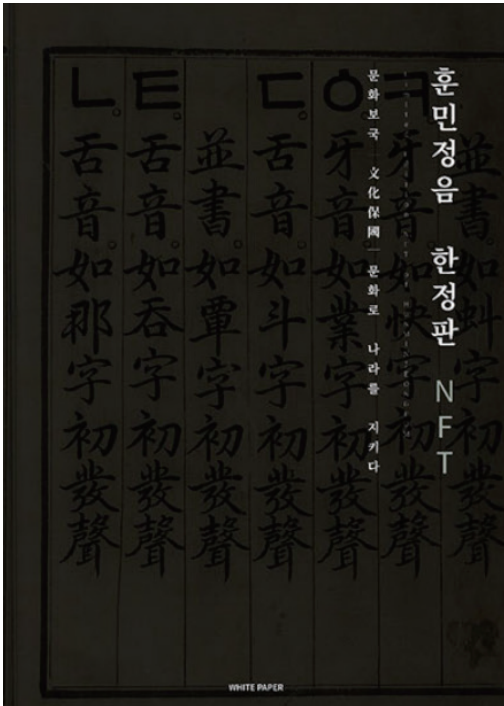 훈민정음 한정판 NFT
문화보국 文化保國 문화로 나라를 지키다
ㅋ。牙音。如快字初發聲
ㆁ。牙音。如業字初發聲
ㄷ。舌音。如斗字初發聲
並書。如覃字初發聲
ㅌ。舌音。如呑字初發聲
ㄴ。舌音。如那字初發聲
WHITE PAPER